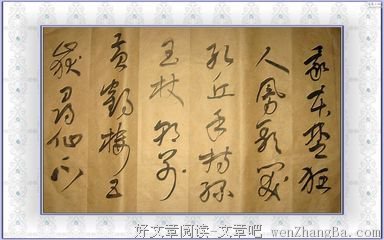 我本楚狂
人鳳歌笑
孔丘手持綠
玉杖朝别
黄鶴樓五
嶽尋仙不
好文章阅读-文章吧 wenZhangBa.com